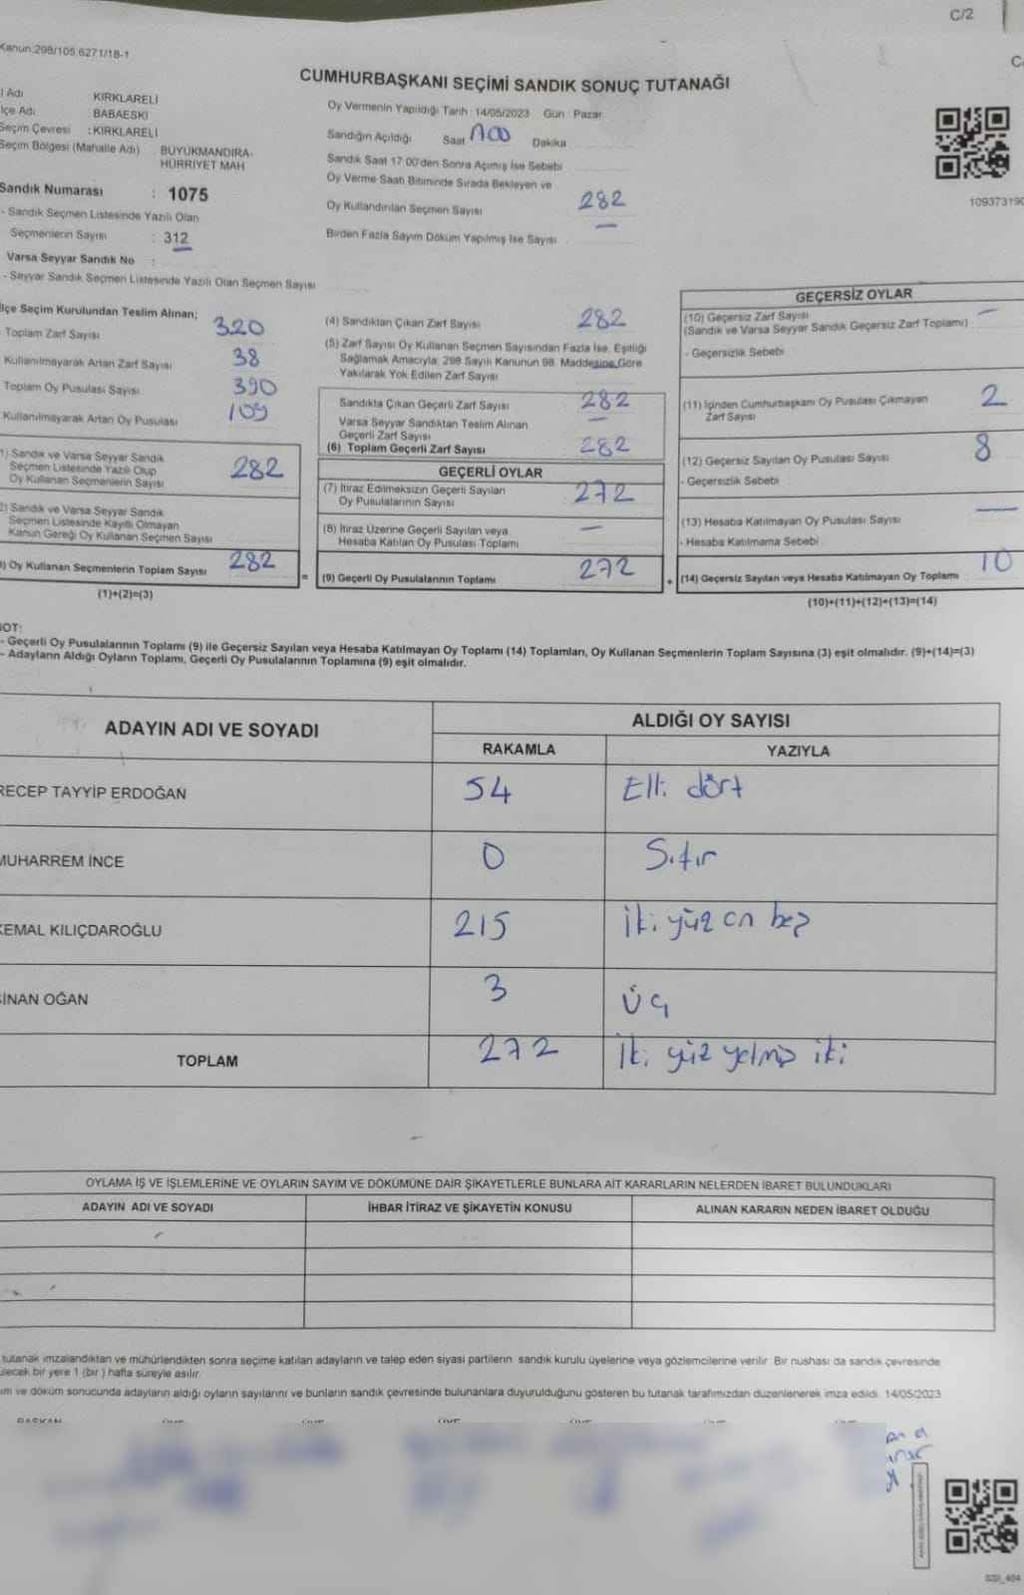 C/2
Kanun:298/105,6271/18-1
CUMHURBAŞKANI SEÇİMİ SANDIK SONUÇ TUTANAĞI
l Adı KIRKLARELİ
lçe Adı BABAESKİ
Seçim Çevresi :KIRKLARELİ
Seçim Bölgesi (Mahalle Adı) BÜYÜKMANDIRA-
HÜRRİYET MAH
Sandık Numarası : 1075
- Sandık Seçmen Listesinde Yazılı Olan
Seçmenlerin Sayısı : 312
Varsa Seyyar Sandık No :
- Seyyar Sandık Seçmen Listesinde Yazılı Olan Seçmen Sayısı
Oy Vermenin Yapıldığı Tarih : 14/05/2023 Gün : Pazar
Sandığın Açıldığı Saat Dakika
Sandık Saat 17:00'den Sonra Açılmış İse Sebebi
Oy Verme Saati Bitiminde Sırada Bekleyen ve
Oy Kullandırılan Seçmen Sayısı 282
Birden Fazla Sayım Döküm Yapılmış İse Sayısı —
109373190
lçe Seçim Kurulundan Teslim Alınan;
Toplam Zarf Sayısı 320
Kullanılmayarak Artan Zarf Sayısı 38
Toplam Oy Pusulası Sayısı 390
Kullanılmayarak Artan Oy Pusulası 109
1) Sandık ve Varsa Seyyar Sandık
Seçmen Listesinde Yazılı Olup
Oy Kullanan Seçmenlerin Sayısı 282
2) Sandık ve Varsa Seyyar Sandık
Seçmen Listesinde Kayıtlı Olmayan
Kanun Gereği Oy Kullanan Seçmen Sayısı
) Oy Kullanan Seçmenlerin Toplam Sayısı 282
(1)+(2)=(3)
(4) Sandıktan Çıkan Zarf Sayısı 282
(5) Zarf Sayısı Oy Kullanan Seçmen Sayısından Fazla İse, Eşitliği
Sağlamak Amacıyla, 298 Sayılı Kanunun 98. Maddesine Göre
Yakılarak Yok Edilen Zarf Sayısı
Sandıkta Çıkan Geçerli Zarf Sayısı 282
Varsa Seyyar Sandıktan Teslim Alınan
Geçerli Zarf Sayısı —
(6) Toplam Geçerli Zarf Sayısı 282
GEÇERLİ OYLAR
(7) İtiraz Edilmeksizin Geçerli Sayılan
Oy Pusulalarının Sayısı 272
(8) İtiraz Üzerine Geçerli Sayılan veya
Hesaba Katılan Oy Pusulası Toplamı —
= (9) Geçerli Oy Pusulalarının Toplamı 272
GEÇERSİZ OYLAR
(10) Geçersiz Zarf Sayısı —
(Sandık ve Varsa Seyyar Sandık Geçersiz Zarf Toplamı)
- Geçersizlik Sebebi
(11) İçinden Cumhurbaşkanı Oy Pusulası Çıkmayan
Zarf Sayısı 2
(12) Geçersiz Sayılan Oy Pusulası Sayısı 8
- Geçersizlik Sebebi
(13) Hesaba Katılmayan Oy Pusulası Sayısı —
- Hesaba Katılmama Sebebi
+ (14) Geçersiz Sayılan veya Hesaba Katılmayan Oy Toplamı 10
(10)+(11)+(12)+(13)=(14)
NOT:
- Geçerli Oy Pusulalarının Toplamı (9) ile Geçersiz Sayılan veya Hesaba Katılmayan Oy Toplamı (14) Toplamları, Oy Kullanan Seçmenlerin Toplam Sayısına (3) eşit olmalıdır. (9)+(14)=(3)
- Adayların Aldığı Oyların Toplamı, Geçerli Oy Pusulalarının Toplamına (9) eşit olmalıdır.
ADAYIN ADI VE SOYADI ALDIĞI OY SAYISI
RAKAMLA YAZIYLA
RECEP TAYYİP ERDOĞAN 54 Elli dört
MUHARREM İNCE 0 Sıfır
KEMAL KILIÇDAROĞLU 215 İki yüz on beş
SİNAN OĞAN 3 Üç
TOPLAM 272 İki yüz yetmiş iki
OYLAMA İŞ VE İŞLEMLERİNE VE OYLARIN SAYIM VE DÖKÜMÜNE DAİR ŞİKAYETLERLE BUNLARA AİT KARARLARIN NELERDEN İBARET BULUNDUKLARI
ADAYIN ADI VE SOYADI İHBAR İTİRAZ VE ŞİKAYETİN KONUSU ALINAN KARARIN NEDEN İBARET OLDUĞU
tutanak imzalandıktan ve mühürlendikten sonra seçime katılan adayların ve talep eden siyasi partilerin sandık kurulu üyelerine veya gözlemcilerine verilir. Bir nüshası da sandık çevresinde
ilecek bir yere 1 (bir ) hafta süreyle asılır.
ım ve döküm sonucunda adayların aldığı oyların sayılarını ve bunların sandık çevresinde bulunanlara duyurulduğunu gösteren bu tutanak tarafımızdan düzenlenerek imza edildi. 14/05/2023
BAŞKAN